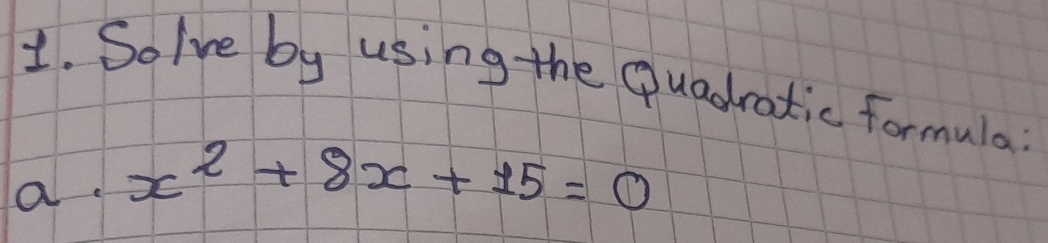 1. Solve by using the Quadratic formula:
a. x² + 8x + 15 = 0